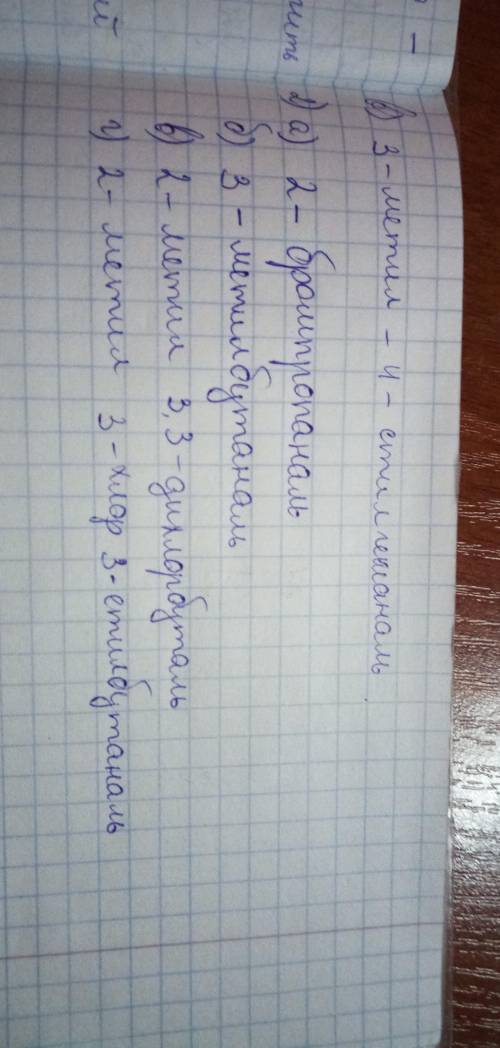 в) 3 - метил - 4 - етилгексаналь
2) а) 2 - бромпропаналь
б) 3 - метилбутаналь
в) 2 - метил 3,3 - дихлорбуталь
г) 2 - метил 3 - хлор 3 - етилбутаналь